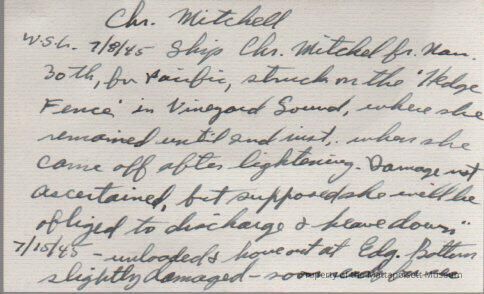 Chr. Mitchell
W.S.L. 7/8/45 Ship Chr. Mitchel fr. Nan.
30th, for Pacific, struck on the 'Hedge
Fence' in Vineyard Sound, where she
remained until 2nd inst., when she
came off after lightening. Damage not
ascertained, but supposed she will be
obliged to discharge & heave down"
7/15/45 - unloaded & hove out at Edg. Bottom
slightly damaged - soon
Property of the Mattapoisett Museum